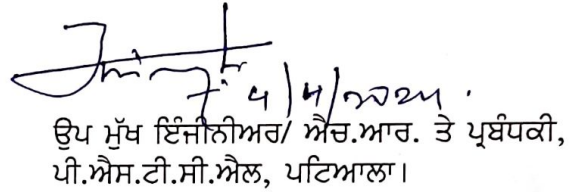 ਉਪ ਮੁੱਖ ਇੰਜੀਨੀਅਰ/ ਐਚ.ਆਰ. ਤੇ ਪ੍ਰਬੰਧਕੀ,
ਪੀ.ਐਸ.ਟੀ.ਸੀ.ਐਲ, ਪਟਿਆਲਾ।